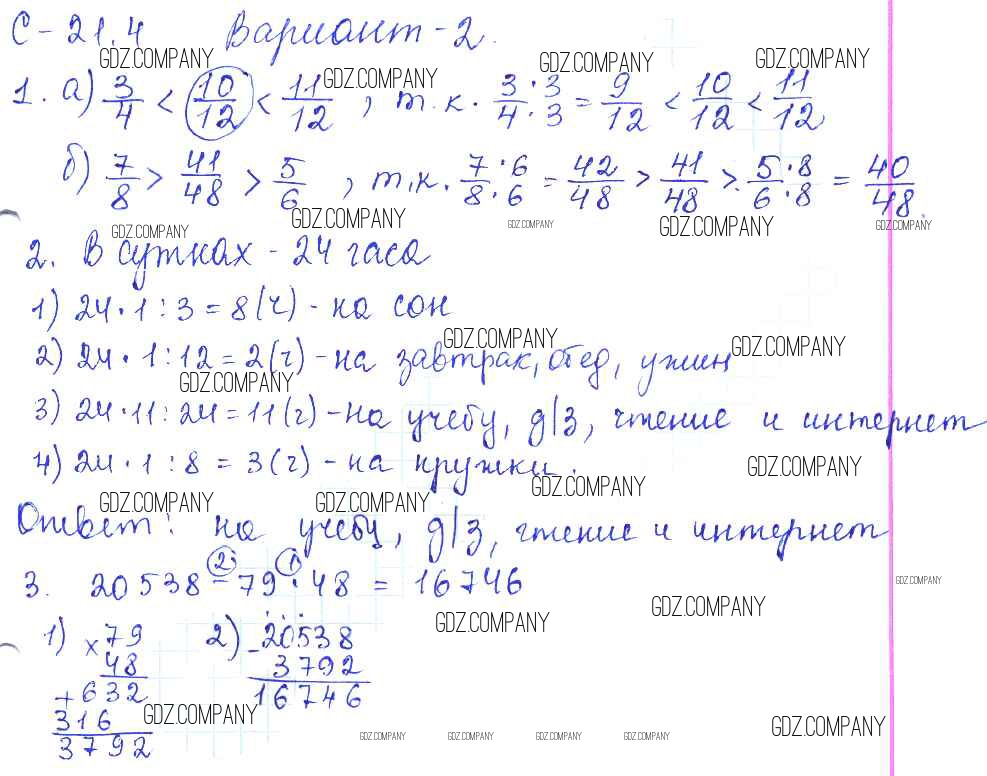 С-21.4 Вариант-2.
GDZ.COMPANY GDZ.COMPANY GDZ.COMPANY GDZ.COMPANY
1. а) 3/4 < 10/12 < 11/12, т.к. 3·3/4·3 = 9/12 < 10/12 < 11/12
б) 7/8 > 41/48 > 5/6, т.к. 7·6/8·6 = 42/48 > 41/48 > 5·8/6·8 = 40/48.
GDZ.COMPANY GDZ.COMPANY GDZ.COMPANY GDZ.COMPANY GDZ.COMPANY
2. В сутках - 24 часа
1) 24·1:3=8(ч) - на сон
GDZ.COMPANY GDZ.COMPANY
2) 24·1:12=2(ч) - на завтрак, обед, ужин
GDZ.COMPANY
3) 24·11:24=11(ч) - на учебу, д/з, чтение и интернет
4) 24·1:8=3(ч) - на кружки.
GDZ.COMPANY GDZ.COMPANY
GDZ.COMPANY GDZ.COMPANY
Ответ: на учебу, д/з, чтение и интернет
2 1
3. 20538 - 79·48 = 16746
GDZ.COMPANY
GDZ.COMPANY GDZ.COMPANY
1) × 79 2) - 20538
48 3792
+ 632 16746
316
3792
GDZ.COMPANY GDZ.COMPANY
GDZ.COMPANY GDZ.COMPANY GDZ.COMPANY GDZ.COMPANY